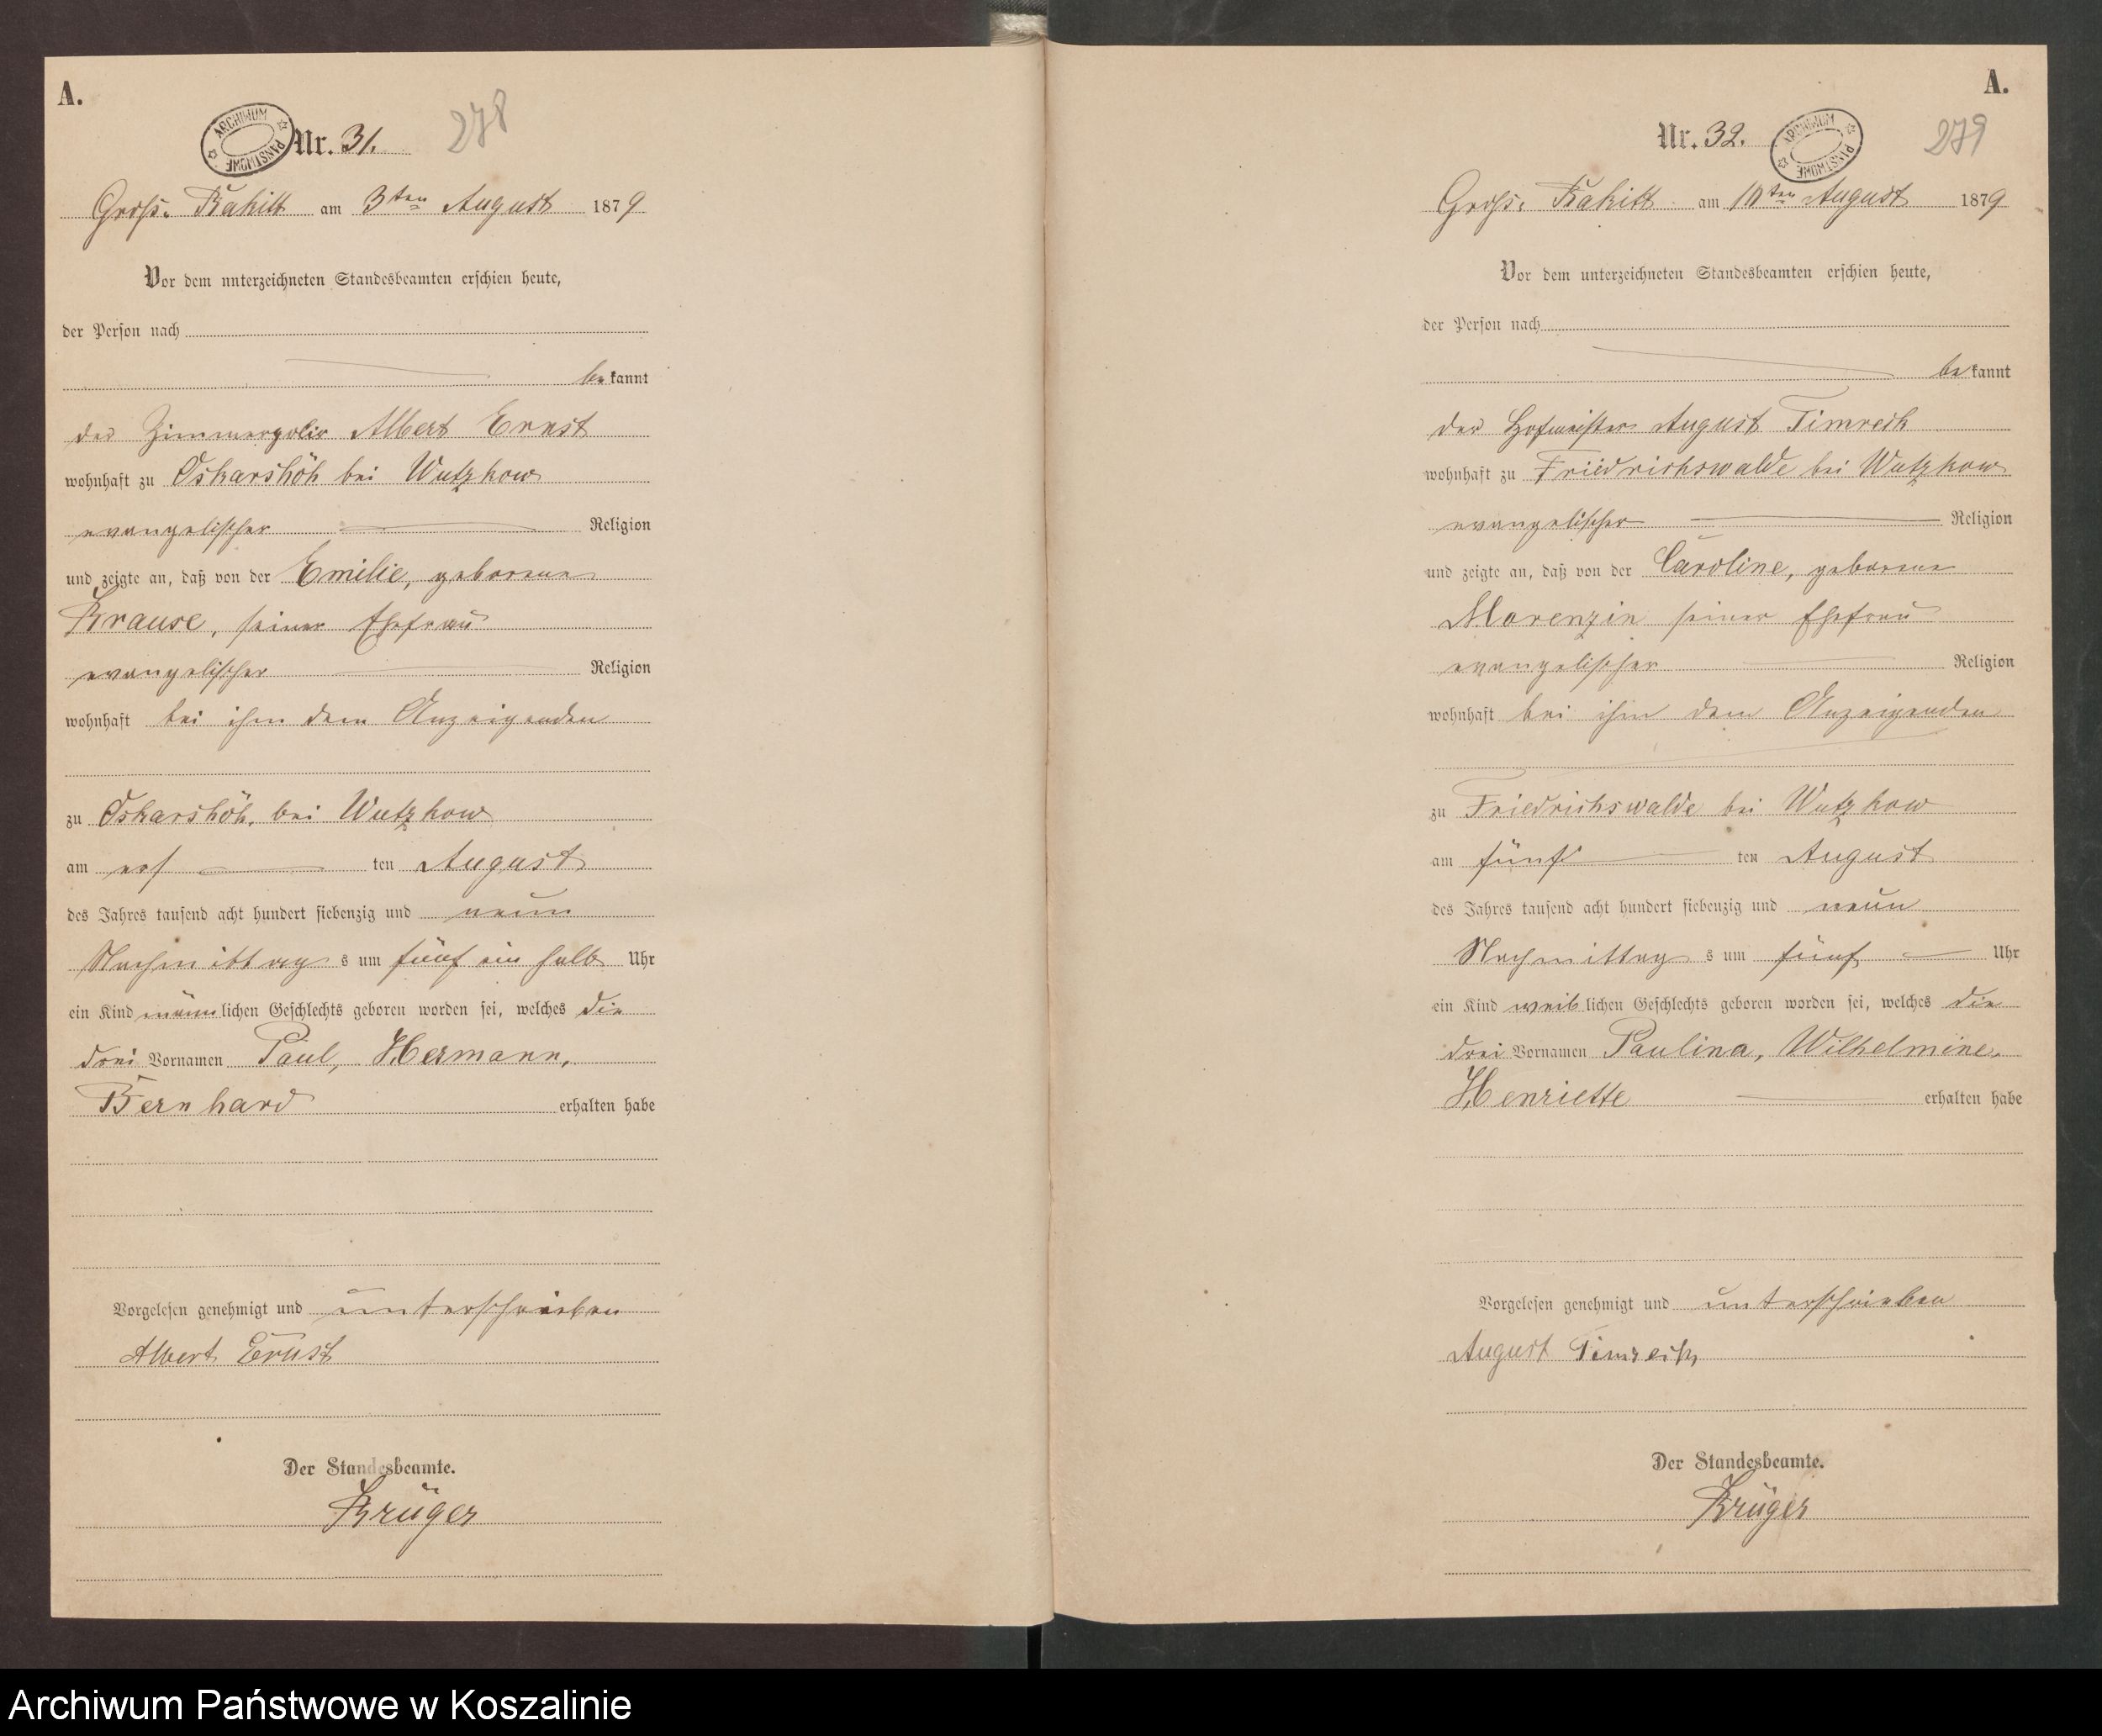 A.
ARCHIWUM PAŃSTWOWE
Nr. 31.
278
Groß-Rakitt am 3ten August 1879
Vor dem unterzeichneten Standesbeamten erschien heute,
der Person nach
bekannt
der Zimmerpolir Albert Ernst
wohnhaft zu Oskarshöh bei Wutzkow
evangelischer Religion
und zeigte an, daß von der Emilie, geborene
Krause, seiner Ehefrau
evangelischer Religion
wohnhaft bei ihm dem Anzeigenden
zu Oskarshöh, bei Wutzkow
am ers ten August
des Jahres tausend acht hundert siebenzig und neun
Nachmittag s um fünf ein halb Uhr
ein Kind männlichen Geschlechts geboren worden sei, welches die
drei Vornamen Paul, Hermann,
Bernhard erhalten habe
Vorgelesen genehmigt und unterschrieben
Albert Ernst
Der Standesbeamte.
Krüger
A.
Nr. 32.
ARCHIWUM PAŃSTWOWE
279
Groß-Rakitt am 10ten August 1879
Vor dem unterzeichneten Standesbeamten erschien heute,
der Person nach
bekannt
der Hofmeister August Timreck
wohnhaft zu Friedrichswalde bei Wutzkow
evangelischer Religion
und zeigte an, daß von der Caroline, geborene
Marenzin seiner Ehefrau
evangelischer Religion
wohnhaft bei ihm dem Anzeigenden
zu Friedrichswalde bei Wutzkow
am fünf ten August
des Jahres tausend acht hundert siebenzig und neun
Nachmittag s um fünf Uhr
ein Kind weiblichen Geschlechts geboren worden sei, welches die
drei Vornamen Paulina, Wilhelmine,
Henriette erhalten habe
Vorgelesen genehmigt und unterschrieben
August Timreck
Der Standesbeamte.
Krüger
Archiwum Państwowe w Koszalinie